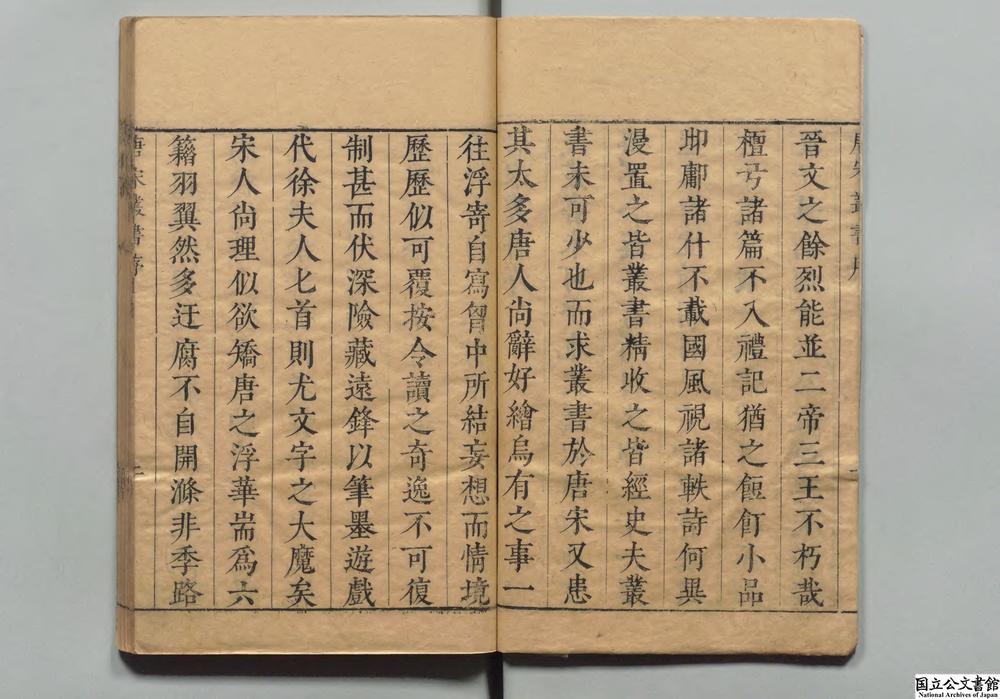 唐宋叢書序
晉文之餘烈能並二帝三王不朽哉
檀弓諸篇不入禮記猶之餖飣小品
郫鄘諸什不載國風視諸軼詩何異
漫置之皆叢書精收之皆經史夫叢
書未可少也而求叢書於唐宋又患
其太多唐人尚辭好繪烏有之事一
往浮寄自寫胷中所結妄想而情境
歷歷似可覆按令讀之奇逸不可復
制甚而伏深險藏遠鋒以筆墨遊戲
代徐夫人匕首則尤文字之大魔矣
宋人尚理似欲矯唐之浮華耑爲六
籍羽翼然多迂腐不自開滌非季路
唐宋叢書序
二
国立公文書館
National Archives of Japan